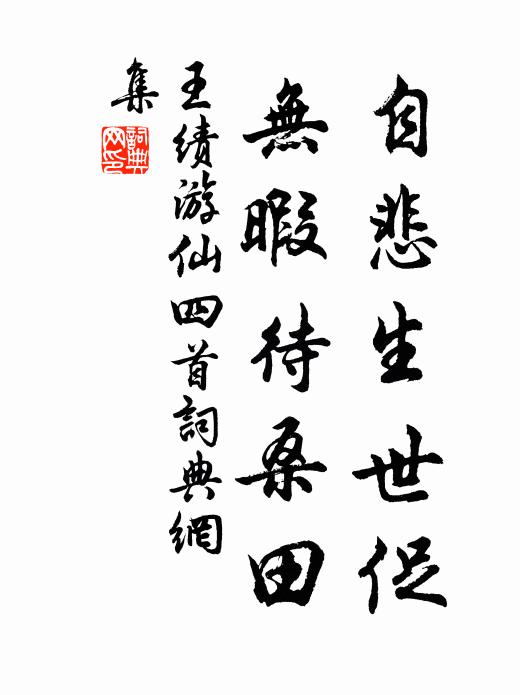 自悲生世促
無暇待桑田
王績游仙四首詞典網
集
詞典
网印